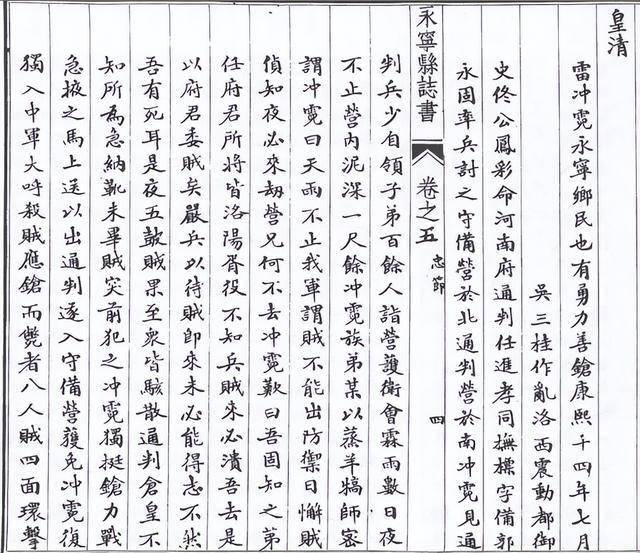 皇清
雷冲霓永寧鄉民也有勇力善鎗康熙十四年七月
吳三桂作亂洛西震動都御
史佟公鳳彩命河南府通判任進孝同撫標守備郭
永固率兵討之守備營於北通判營於南冲霓見通
永寧縣誌書
卷之五
忠節
四
判兵少自領子弟百餘人詣營護衛會霖雨數日夜
不止營內泥深一尺餘冲霓族弟某以蒸羊犒師密
謂冲霓曰天雨不止我軍謂賊不能出防禦日懈賊
偵知夜必來刼營兄何不去冲霓歎曰吾固知之弟
任府君所將皆洛陽胥役不知兵賊來必潰吾去是
以府君委賊矣嚴兵以待賊即來未必能得志不然
吾有死耳是夜五鼓賊果至衆皆駭散通判倉皇不
知所為急納靴未畢賊突前犯之冲霓獨挺鎗力戰
急掖之馬上送以出通判遂入守備營獲免冲霓復
獨入中軍大呼殺賊應鎗而斃者八人賊四面環擊